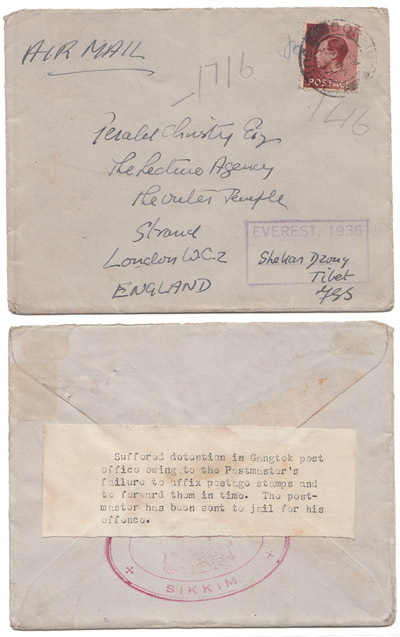 AIR MAIL
1716
POSTAGE
1416
Gerald Christy Esq
The Lecture Agency
The Outer Temple
Strand
London W.C.2
ENGLAND
EVEREST. 1936
Shekar Dzong
Tibet
Suffered detention in Gangtok post
office owing to the Postmaster's
failure to affix postage stamps and
to forward them in time. The post-
master has been sent to jail for his
offence.
SIKKIM